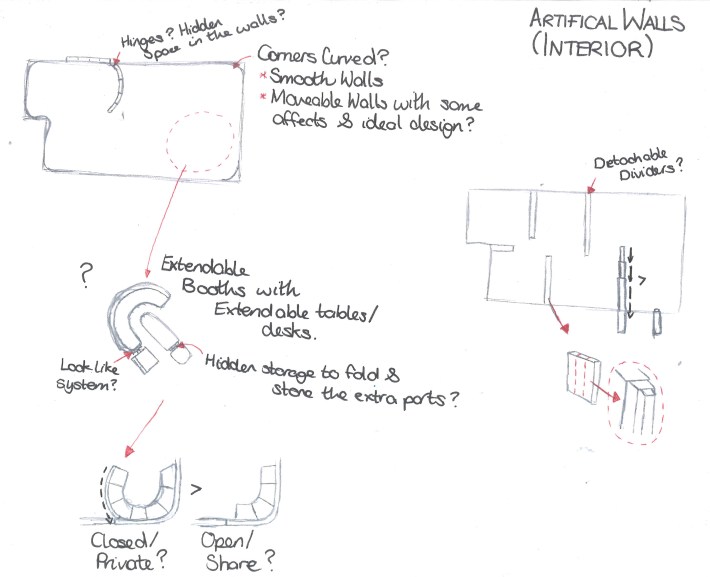 ARTIFICAL WALLS
(INTERIOR)
Hinges? Hidden
Space in the walls?
Corners Curved?
* Smooth Walls
* Moveable Walls with same
affects & ideal design?
Detachable
Dividers?
>
?
Extendable
Booths with
Extendable tables/
desks.
Look like
system?
Hidden storage to fold &
store the extra parts?
>
Closed/
Private?
Open/
Share?